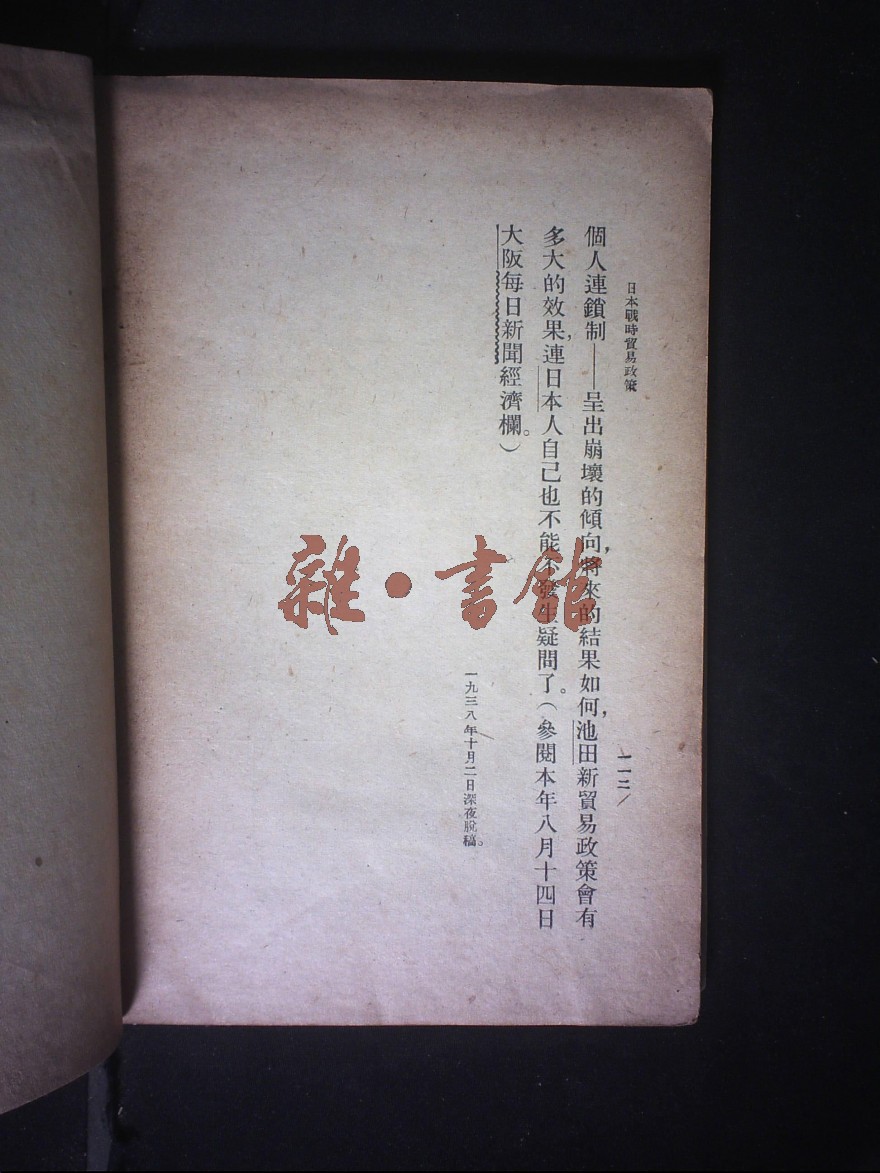 日本戰時貿易政策
一一二
個人連鎖制——呈出崩壞的傾向，將來的結果如何，池田新貿易政策會有
多大的效果，連日本人自己也不能不發生疑問了。（參閱本年八月十四日
大阪每日新聞經濟欄。）
一九三八年十月二日深夜脫稿。
雜·書館